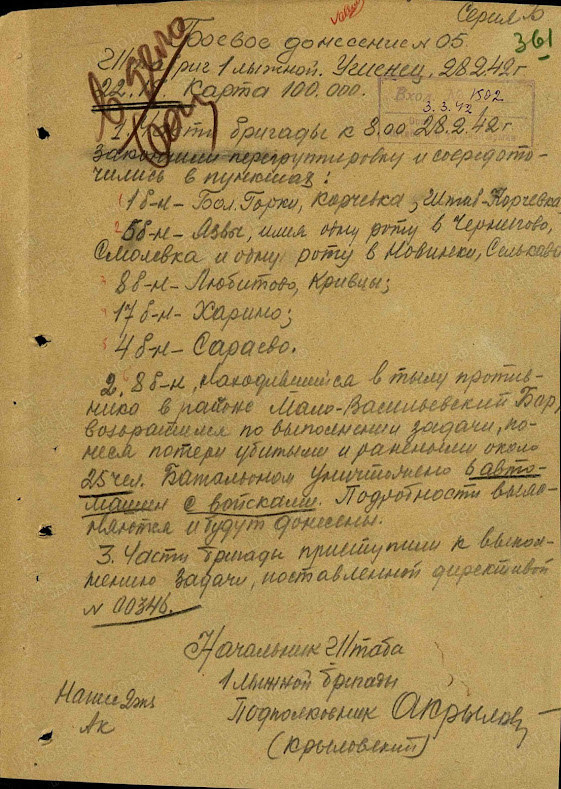 Серия Ю
361
Боевое донесение №05
Штабриг 1 лыжной. 28.2.42г
Карта 100.000.
В дело
Вход. № 1502
3.3.42
1. Части бригады к 8.00 28.2.42г
закончили перегруппировку и сосредото-
чились в пунктах:
1 б-н – Бол. Горки, Корчевка; Штаб – Корчевка
5 б-н – Язвы, имея одну роту в Чернигово,
Смолевка и одну роту в Новинки,
8 б-н – Любитово, Кривцы;
17 б-н – Харино;
4 б-н – Сараево.
2. 8 б-н, находившийся в тылу против-
ника в районе Мало-Васильевский Бор,
возвратился по выполнении задачи, по-
неся потери убитыми и ранеными около
25 чел. Батальоном уничтожено 6 авто-
машин с войсками. Подробности выяс-
няются и будут донесены.
3. Части бригады приступили к выпол-
нению задачи, поставленной директивой
№ 00346.
Начальник Штаба
1 лыжной бригады
Подполковник Акрылов
(Крыловский)
Ак